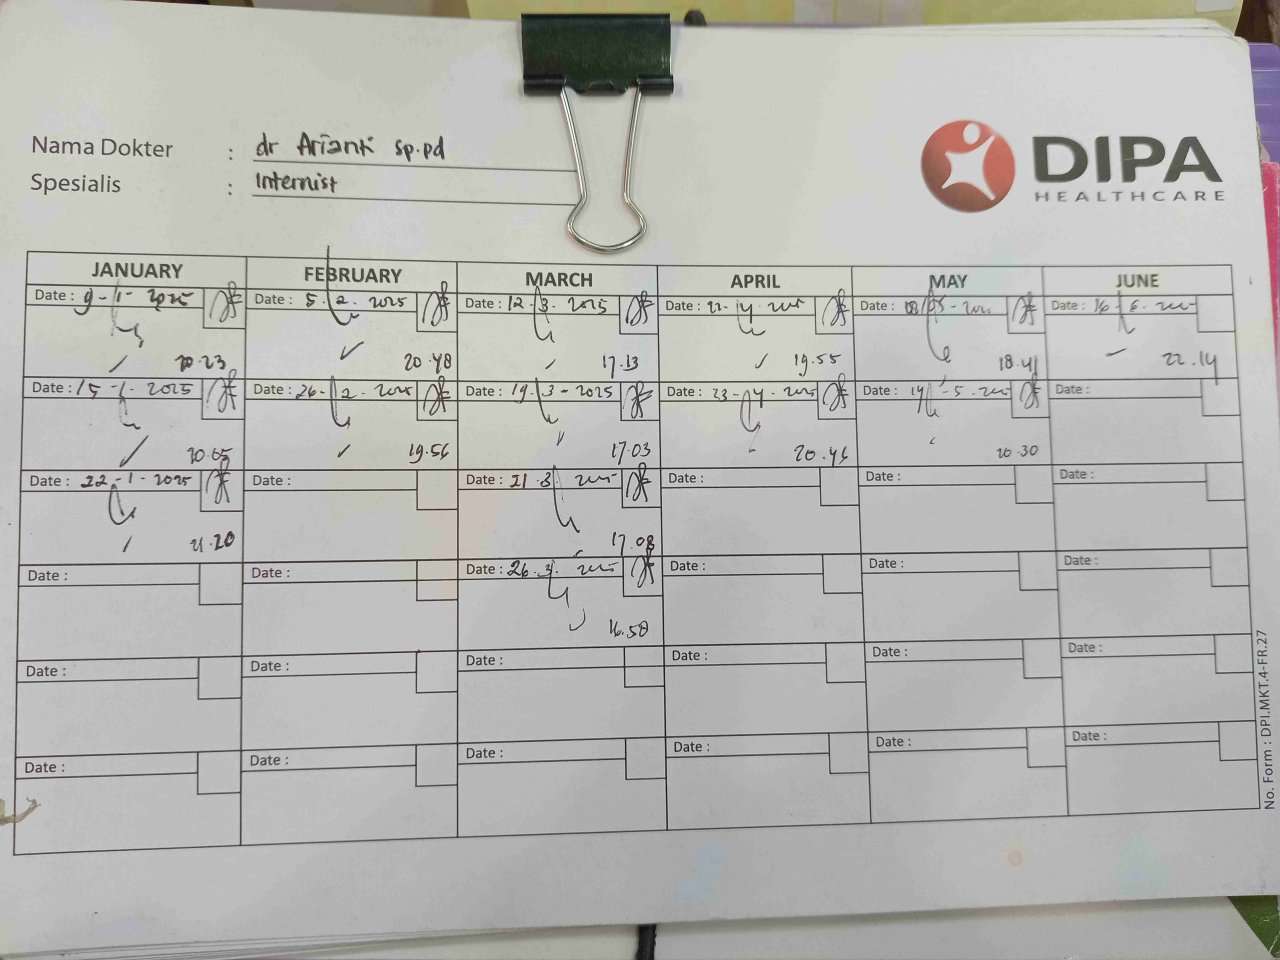 Nama Dokter : dr Arianti sp.pd
Spesialis : Internist
DIPA
HEALTHCARE
JANUARY FEBRUARY MARCH APRIL MAY JUNE
Date : 9-1-2025 Date : 5.2.2025 Date : 12.3.2025 Date : 22.4. Date : Date : 16.6.
20.23 20.48 17.13 19.55 18.41 22.14
Date : 15-1-2025 Date : 26-2.2025 Date : 19.3-2025 Date : 23-4. Date : 14-5. Date :
20.05 19.56 17.03 20.46 20.30
Date : 22-1-2025 Date : Date : 21.3. Date : Date : Date :
21.20 17.08
Date : Date : Date : 26.3. Date : Date : Date :
16.58
Date : Date : Date : Date : Date : Date :
Date : Date : Date : Date : Date : Date :
No. Form : DPI.MKT.4-FR.27